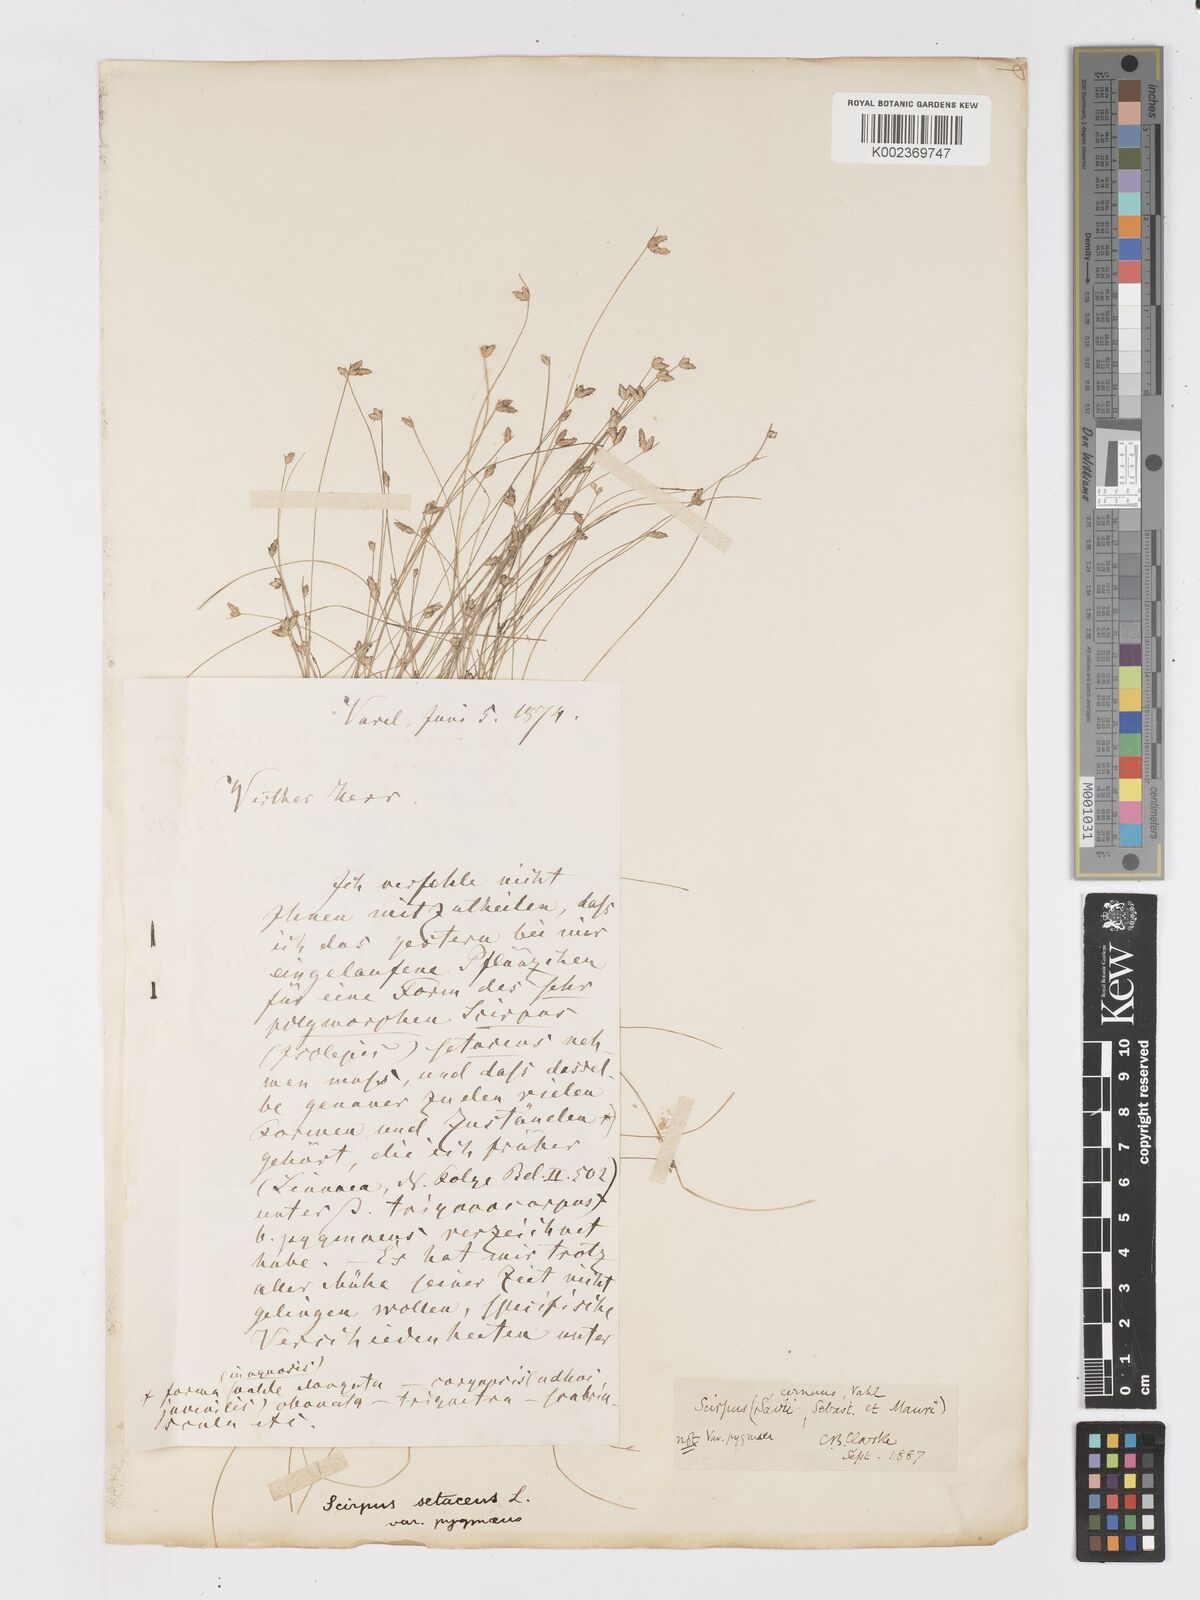 ROYAL BOTANIC GARDENS KEW
K002369747
Varel, Juni 5. 1874.
Werther Herr.
Ich verfehle nicht
Ihnen mitzutheilen, daſs
ich das gestern bei mir
eingelaufene Pflänzchen
für eine Form des sehr
polymorphen Scirpus
(Isolepis) setaceus neh-
men muſs, und daſs dassel-
be genauer zu den vielen
Formen und Zuständen *)
gehört, die ich früher
(Linnaea, N. Folge Bd. II. 502)
unter β. trigonocarpus
b. pygmaeus verzeichnet
habe. — Es hat mir trotz
aller Mühe seiner Zeit nicht
gelingen wollen, specifische
Verschiedenheiten unter
forma valde elongata —
juvenilis) obovata — triquetra —
etc.
cernuus, Vahl
Scirpus (Savii, Sebast. et Mauri)
not Var. pygmaea
CB Clarke
Sept. 1887
Scirpus setaceus L.
var. pygmaeus
inches
centimetres
D50 Illuminant, 2 degree observer
Density
Don Williams
M001031
Royal Botanic Gardens
Kew
0 1 2 3 4 5 6 7 8 9 10
cm
copyright reserved